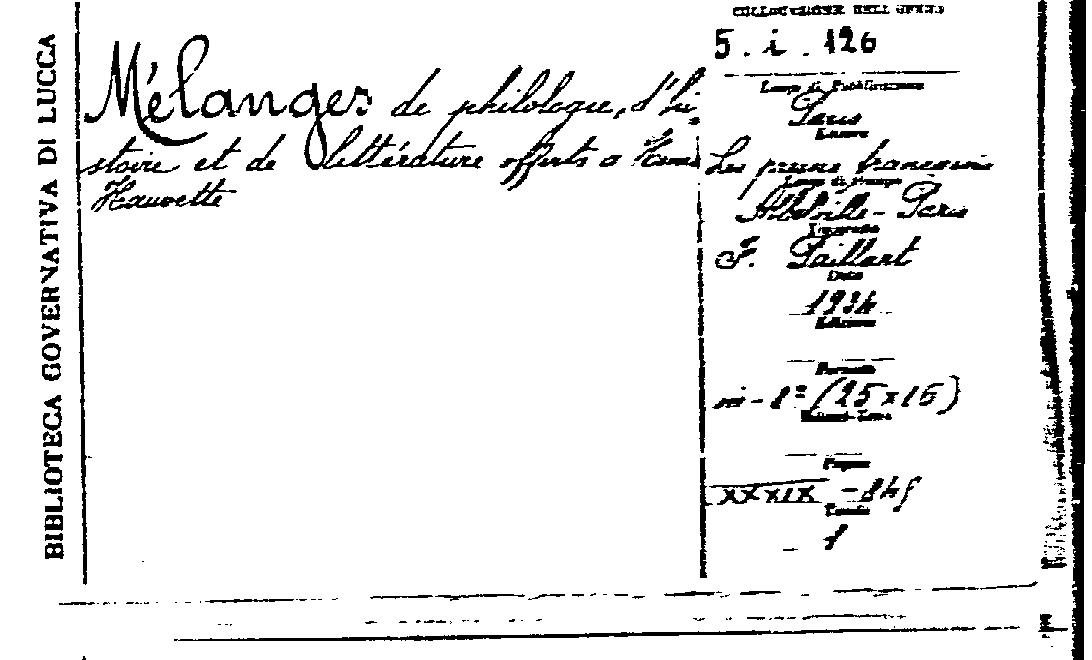 BIBLIOTECA GOVERNATIVA DI LUCCA
Mélanges de philologie, d'hi-
stoire et de littérature offerts a Henri
Hauvette
COLLOCAZIONE DELL'OPERA
5. i. 126
Luogo di Pubblicazione
Paris
Les presses françaises
Luogo di Stampa
Abbeville - Paris
F. Paillart
Data
1934
Edizione
Formato
in-8° (25x16)
Pagine
XXXIX - 845
1